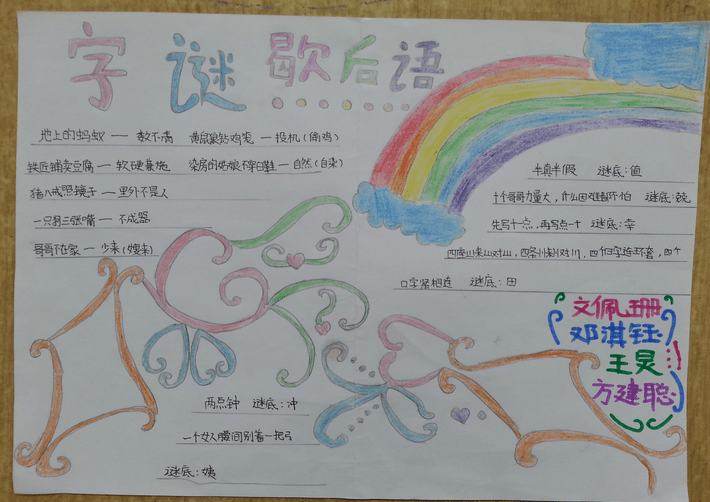 字谜歇后语
地上的蚂蚁 — 数不清
黄鼠狼钻鸡笼 — 投机(偷鸡)
铁匠铺卖豆腐 — 软硬兼施
染房的姑娘不穿白鞋 — 自然(自染)
猪八戒照镜子 — 里外不是人
一只碗三张嘴 — 不成器
哥哥不在家 — 少来(嫂来)
半真半假 谜底:值
十个哥哥力量大,什么困难都不怕 谜底:兢
先写十一点,再写点一十 谜底:幸
四座山来山对山,四条小川川对川,四个日字连环套,四个
口字紧相连 谜底:田
文佩珊
邓淇钰
王昊
方建聪
两点钟 谜底:冲
一个女人腰间别着一把弓
谜底:姨